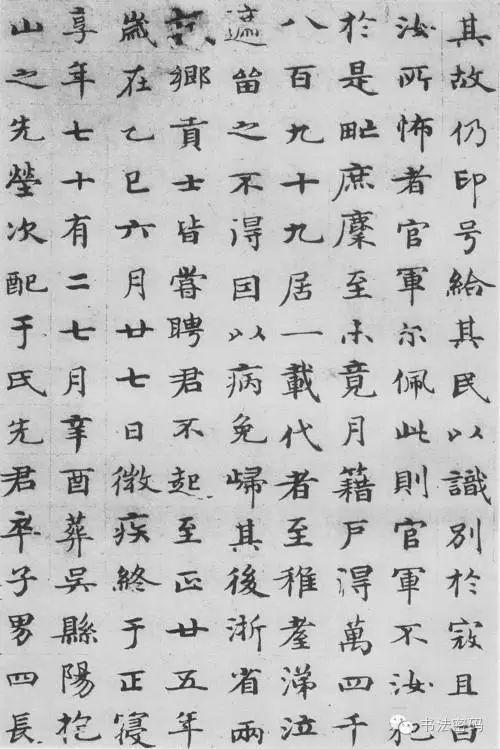 其故仍印号給其民以識別於寇且曰
汝所怖者官軍尓佩此則官軍不汝
於是甿庶麇至未竟月籍戶得萬四千
八百九十九居一載代者至稚耋涕泣
遮留之不得囙以病免歸其後浙省兩
試鄉貢士皆嘗聘君不起至正廿五年
歲在乙巳六月廿七日微疾終于正寢
享年七十有二七月辛酉葬吳縣陽抱
山之先塋次配于氏先君卒子男四長
书法密码